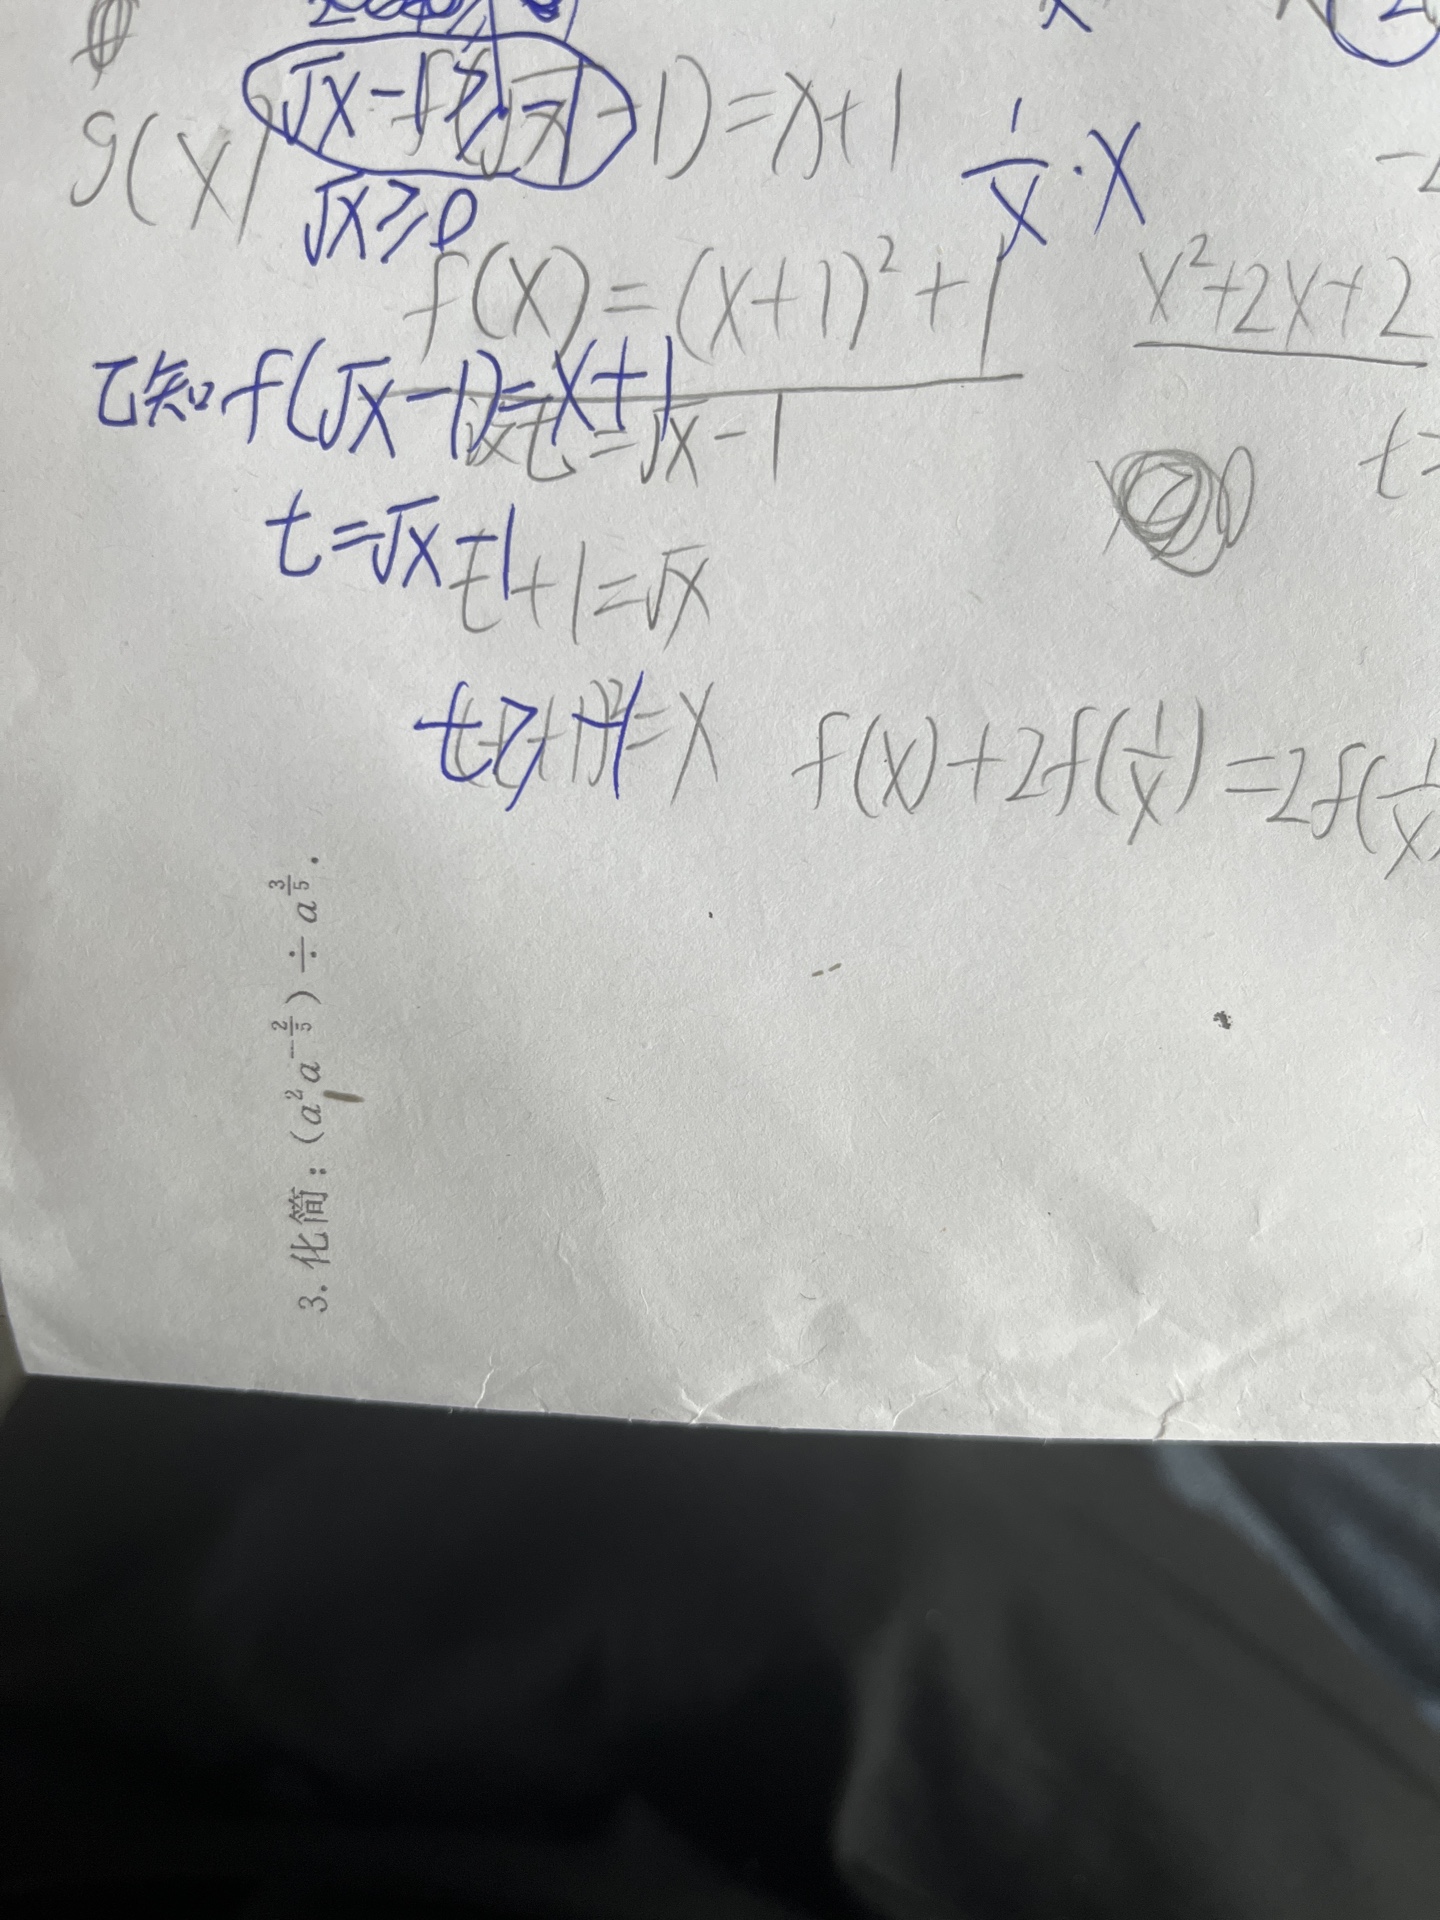 √x-1≥-1
g(x) f(√x-1)=x+1
√x≥0
1/x·x
f(x)=(x+1)²+1
x²+2x+2
已知f(√x-1)=x+1
t=√x-1
t=√x-1
t+1=√x
t≥-1
(t+1)²=x
f(x)+2f(1/x)=2f(1/x)
3. 化简：(a²a^{-2/5})÷a^{3/5}.